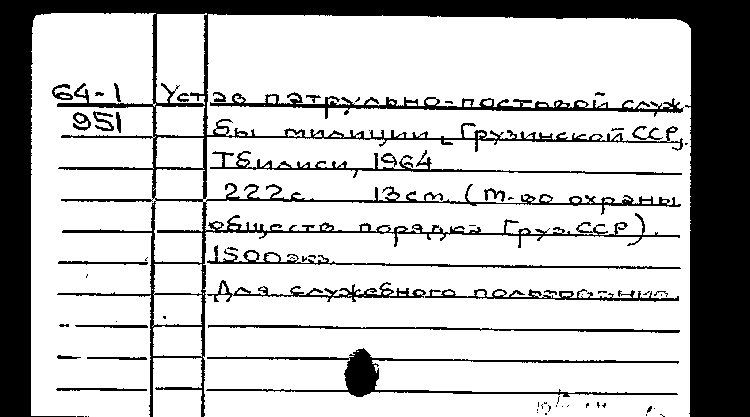 64-1 Устав патрульно-постовой служ-
951 бы милиции [Грузинской ССР].
Тбилиси, 1964
222с. 13см. (М-во охраны
обществ. порядка Груз.ССР).
1500экз.
Для служебного пользования.